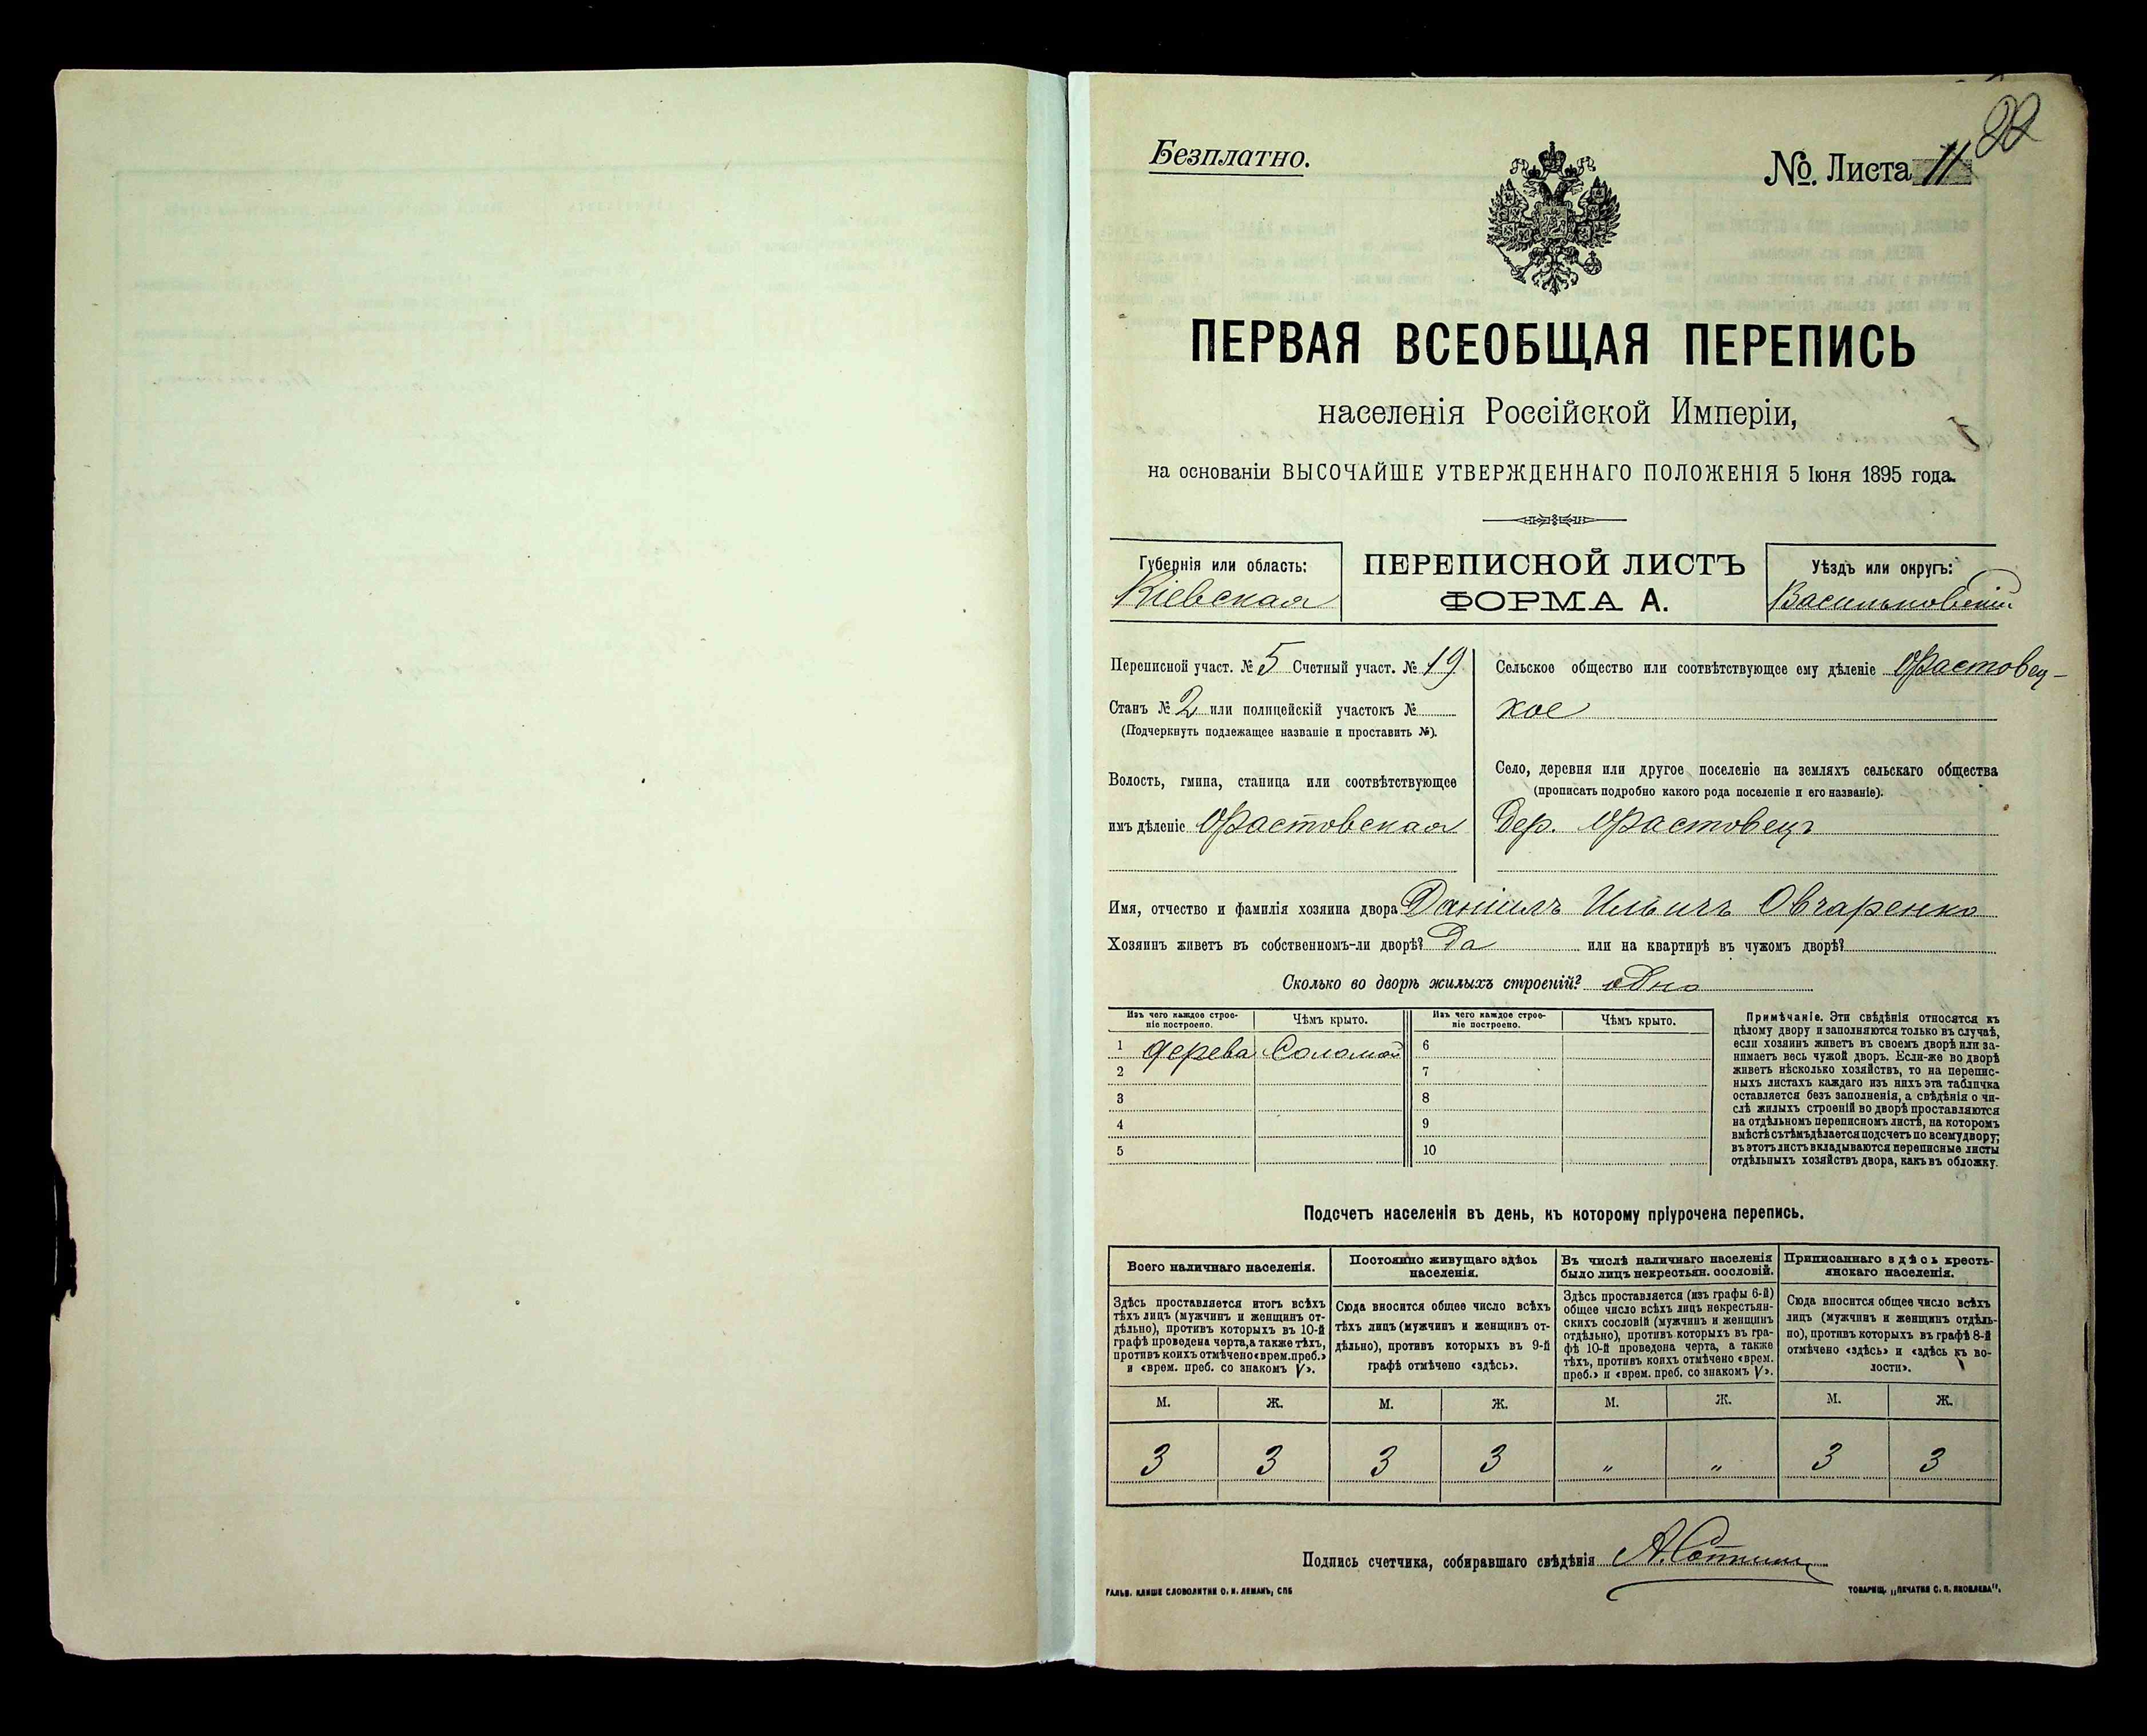 22
Безплатно.
№. Листа 11
ПЕРВАЯ ВСЕОБЩАЯ ПЕРЕПИСЬ
населенія Россійской Имперіи,
на основаніи ВЫСОЧАЙШЕ УТВЕРЖДЕННАГО ПОЛОЖЕНІЯ 5 Іюня 1895 года.
Губернія или область:
Кіевская
ПЕРЕПИСНОЙ ЛИСТЪ
ФОРМА А.
Уѣздъ или округъ:
Васильковскій
Переписной участ. № 5 Счетный участ. № 19
Станъ № 2 или полицейскій участокъ №
(Подчеркнуть подлежащее названіе и проставить №).
Волость, гмина, станица или соотвѣтствующее
имъ дѣленіе Фастовская
Сельское общество или соотвѣтствующее ему дѣленіе Фастовец-
кое
Село, деревня или другое поселеніе на земляхъ сельскаго общества
(прописать подробно какого рода поселеніе и его названіе).
Дер. Фастовецъ
Имя, отчество и фамилія хозяина двора Даніилъ Ильичъ Овчаренко
Хозяинъ живетъ въ собственномъ-ли дворѣ? Да или на квартирѣ въ чужомъ дворѣ?
Сколько во дворѣ жилыхъ строеній? одно
Изъ чего каждое строе-
ніе построено.
Чѣмъ крыто.
Изъ чего каждое строе-
ніе построено.
Чѣмъ крыто.
1 дерева Соломой 6
2 7
3 8
4 9
5 10
Примѣчаніе. Эти свѣдѣнія относятся къ
цѣлому двору и заполняются только въ случаѣ,
если хозяинъ живетъ въ своемъ дворѣ или за-
нимаетъ весь чужой дворъ. Если-же во дворѣ
живетъ нѣсколько хозяйствъ, то на перепис-
ныхъ листахъ каждаго изъ нихъ эта табличка
оставляется безъ заполненія, а свѣдѣнія о чи-
слѣ жилыхъ строеній во дворѣ проставляются
на отдѣльномъ переписномъ листѣ, на которомъ
вмѣстѣ съ тѣмъ дѣлается подсчетъ по всему двору;
въ этотъ листъ вкладываются переписные листы
отдѣльныхъ хозяйствъ двора, какъ въ обложку.
Подсчетъ населенія въ день, къ которому пріурочена перепись.
Всего наличнаго населенія.
Здѣсь проставляется итогъ всѣхъ
тѣхъ лицъ (мужчинъ и женщинъ от-
дѣльно), противъ которыхъ въ 10-й
графѣ проведена черта, а также тѣхъ,
противъ коихъ отмѣчено «врем. преб.»
и «врем. преб. со знакомъ V».
Постоянно живущаго здѣсь
населенія.
Сюда вносится общее число всѣхъ
тѣхъ лицъ (мужчинъ и женщинъ от-
дѣльно), противъ которыхъ въ 9-й
графѣ отмѣчено «здѣсь».
Въ числѣ наличнаго населенія
было лицъ некрестьян. сословій.
Здѣсь проставляется (изъ графы 6-й)
общее число всѣхъ лицъ некрестьян-
скихъ сословій (мужчинъ и женщинъ
отдѣльно), противъ которыхъ въ гра-
фѣ 10-й проведена черта, а также
тѣхъ, противъ коихъ отмѣчено «врем.
преб.» и «врем. преб. со знакомъ V».
Приписаннаго здѣсь кресть-
янскаго населенія.
Сюда вносится общее число всѣхъ
лицъ (мужчинъ и женщинъ отдѣль-
но), противъ которыхъ въ графѣ 8-й
отмѣчено «здѣсь» и «здѣсь къ во-
лости».
М. Ж. М. Ж. М. Ж. М. Ж.
3 3 3 3 " " 3 3
Подпись счетчика, собиравшаго свѣдѣнія
ГАЛЬВ. КЛИШЕ СЛОВОЛИТНИ О. И. ЛЕМАНЪ, СПБ
ТОВАРИЩ. „ПЕЧАТНЯ С. П. ЯКОВЛЕВА".